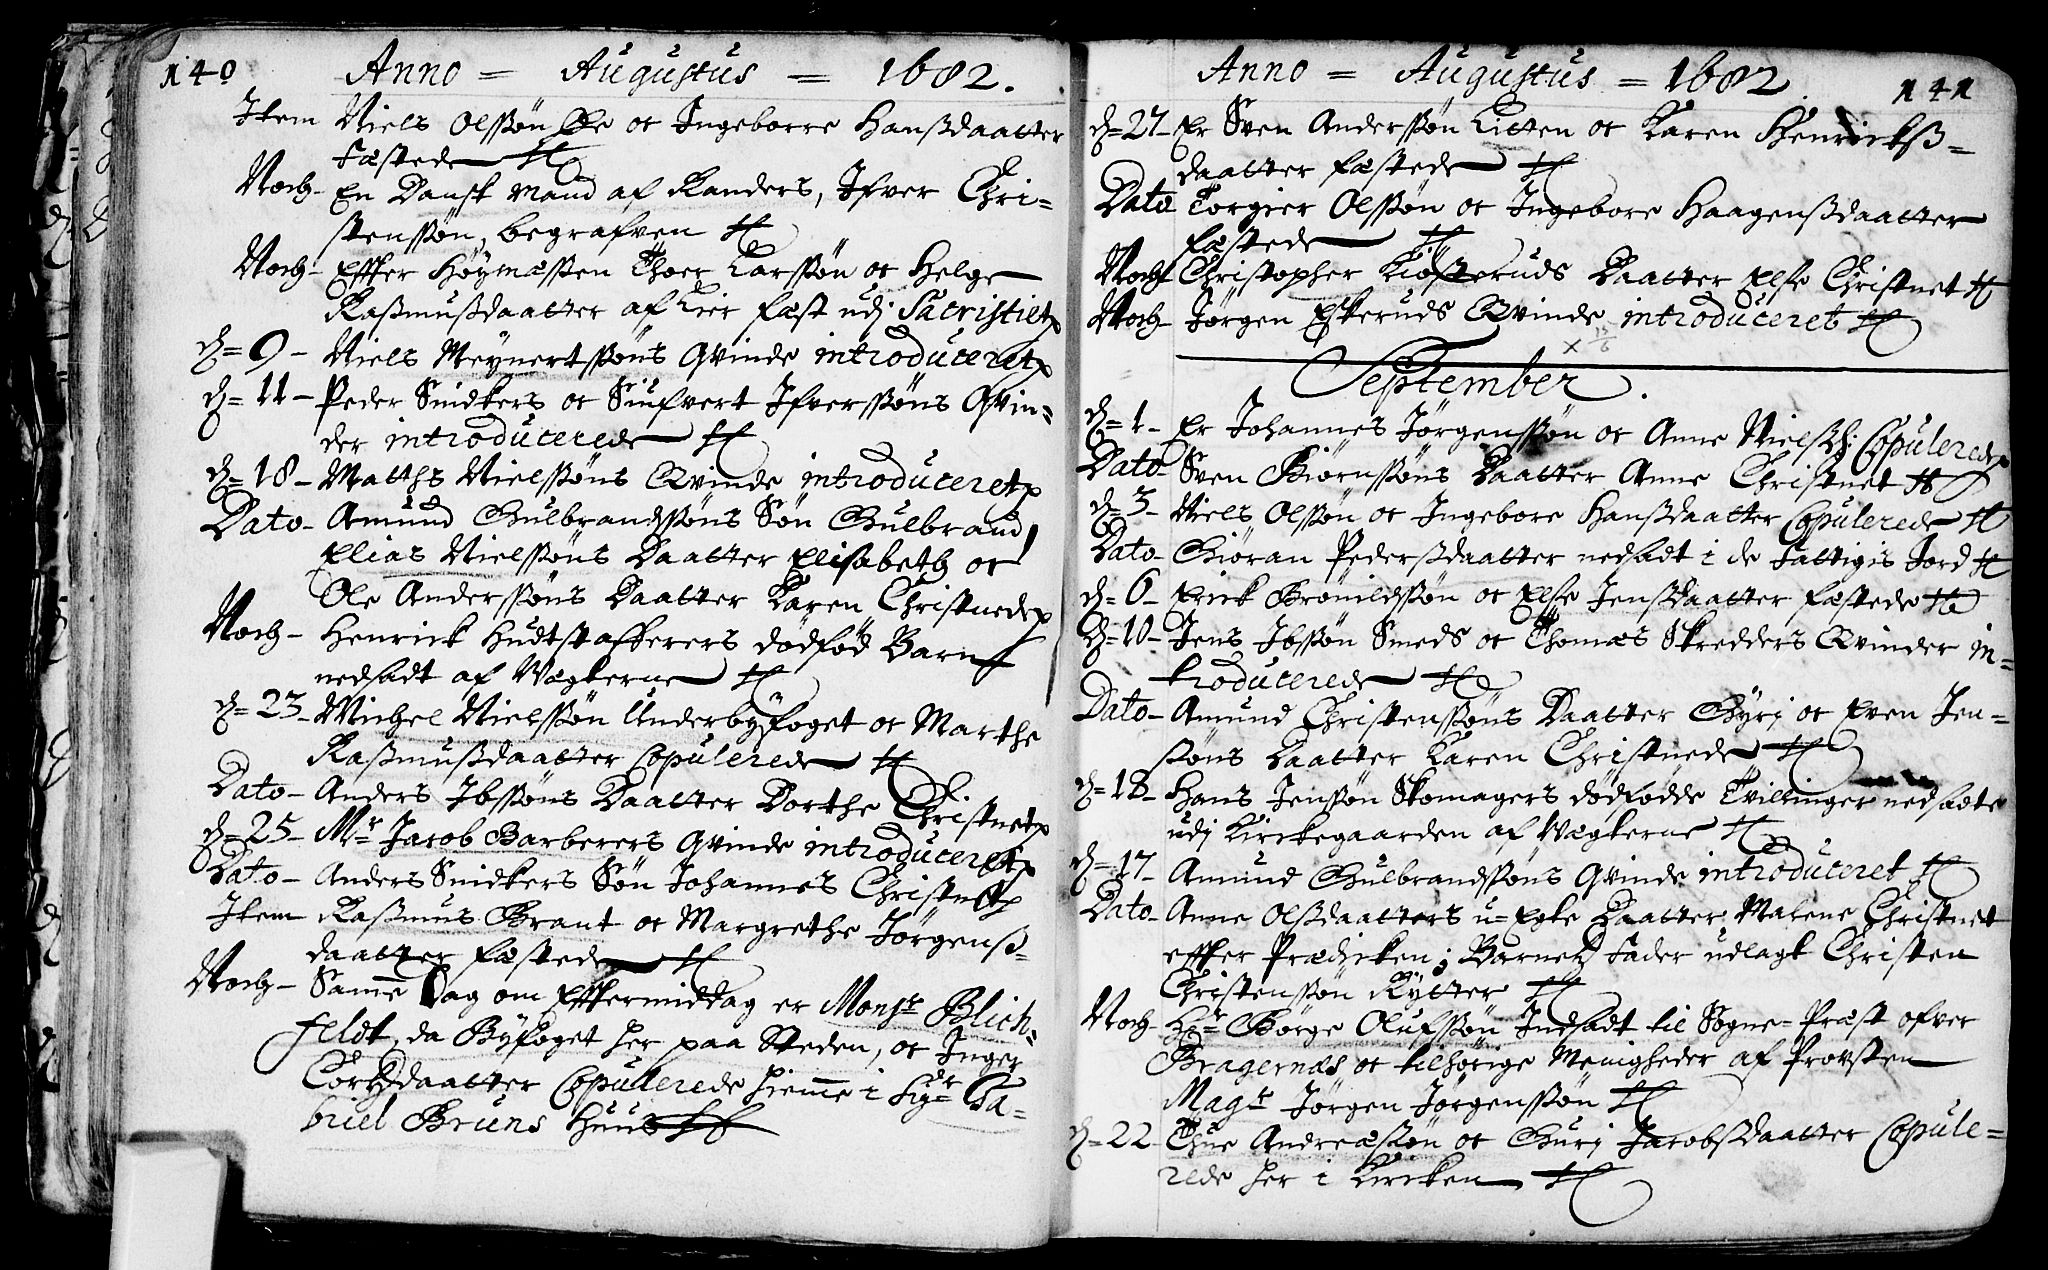 140 Anno = Augustus = 1682.
Item Niels Olssøn Øe oc Ingeborre Hanßdaatter
fæstede
Noch - En Dansk Mand af Randers, Ifver Chri=
stenssøn, begrafven
Noch - Effter Høymæssen Thoer Larssøn oc Helge
Raßmußdaatter af Lier fæst udj Sacristiet
d = 9 - Niels Meynertssøns Qvinde introduceret
d = 11 - Peder Snidkers oc Siufvert Ifverssøns Qvin=
der introducerede
d = 18 - Matths Nielssøns Qvinde introduceret
Dato - Amund Gulbrandssøns Søn Gulbrand
Elias Nielssøns Daatter Elisabeth oc
Ole Anderssøns Daatter Karen Christnede
Noch - Henrick Hudtstafferers dødfød Barn
nedsadt af Vægterne
d = 23 - Michel Nielssøn Underbyfoget oc Marthe
Raßmußdaatter Copulerede
Dato - Anders Ibssøns Daatter Dorthe Christnet
d = 25 - Mr Jacob Barberers Qvinde introduceret
Dato - Anders Snidkers Søn Johannes Christnet
Item Raßmus Brant oc Margrethe Jørgenß=
daatter fæstede
Noch - Samme Dag om Efftermiddag er Monsr Blich=
feldt, da Byfoget her paa Steden, oc Inger
Cortzdaatter Copulerede hiemme i Sigr Ga=
briel Bruns Huus
Anno = Augustus = 1682 141
d = 27 - Er Sven Anderssøn Litten oc Karen Henrickß=
daatter fæstede
Dato Torgier Olssøn oc Ingebore Haagenßdaatter
fæstede
Noch Christopher Kiøsteruds Daatter Else Christnet
Noch - Jørgen Eskeruds Qvinde introduceret
September.
d = 1 - Er Johannes Jørgenssøn oc Anne Nielsd: Copulerede
Dato - Sven Biørnssøns Daatter Anne Christnet
d = 3 - Niels Olssøn oc Ingebore Hanßdaatter Copulerede
Dato - Giøran Pederßdaatter nedsadt i de Fattigis Jord
d = 6 - Erick Brønildssøn oc Else Jenßdaatter fæstede
d = 10 - Jens Ibssøn Smeds oc Thomes Skredders Qvinder in=
troducerede
Dato - Amund Christenssøns Daatter Gyri oc Even Jen=
søns Daatter Karen Christnede
d = 18 - Hans Jenssøn Skomagers dødfødde Tvillinger nedsadte
udj Kirckegaarden af Vægterne
d = 17 - Amund Gulbrandssøns Qvinde introduceret
Dato - Anne Olßdaatters u=Egte Daatter Malene Christnet
effter Prædicken; Barnetz Fader udlagt Christen
Christenssøn Rytter
Noch - Hr Børge Olufssøn Indsadt til Sogne=Præst ofver
Bragernæs oc tilhørige Menigheder af Provsten
Magr Jørgen Jørgenssøn
d = 22 - Thue Andreæssøn oc Guri Jacobsdaatter Copule=
rede her i Kircken